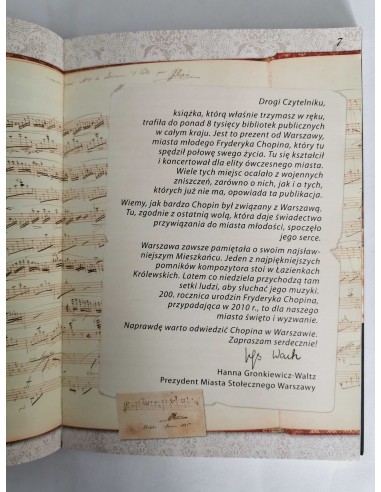 7
Drogi Czytelniku,
książka, którą właśnie trzymasz w ręku,
trafiła do ponad 8 tysięcy bibliotek publicznych
w całym kraju. Jest to prezent od Warszawy,
miasta młodego Fryderyka Chopina, który tu
spędził połowę swego życia. Tu się kształcił
i koncertował dla elity ówczesnego miasta.
Wiele tych miejsc ocalało z wojennych
zniszczeń, zarówno o nich, jak i a tych,
których już nie ma, opowiada ta publikacja.
Wiemy, jak bardzo Chopin był związany z Warszawą.
Tu, zgodnie z ostatnią wolą, która daje świadectwo
przywiązania do miasta młodości, spoczęło
jego serce.
Warszawa zawsze pamiętała o swoim najsław-
niejszym Mieszkańcu. Jeden z najpiękniejszych
pomników kompozytora stoi w Łazienkach
Królewskich. Latem co niedziela przychodzą tam
setki ludzi, aby słuchać jego muzyki.
200. rocznica urodzin Fryderyka Chopina,
przypadająca w 2010 r., to dla naszego
miasta święto i wyzwanie.
Naprawdę warto odwiedzić Chopina w Warszawie.
Zapraszam serdecznie!
Hanna Gronkiewicz-Waltz
Prezydent Miasta Stołecznego Warszawy